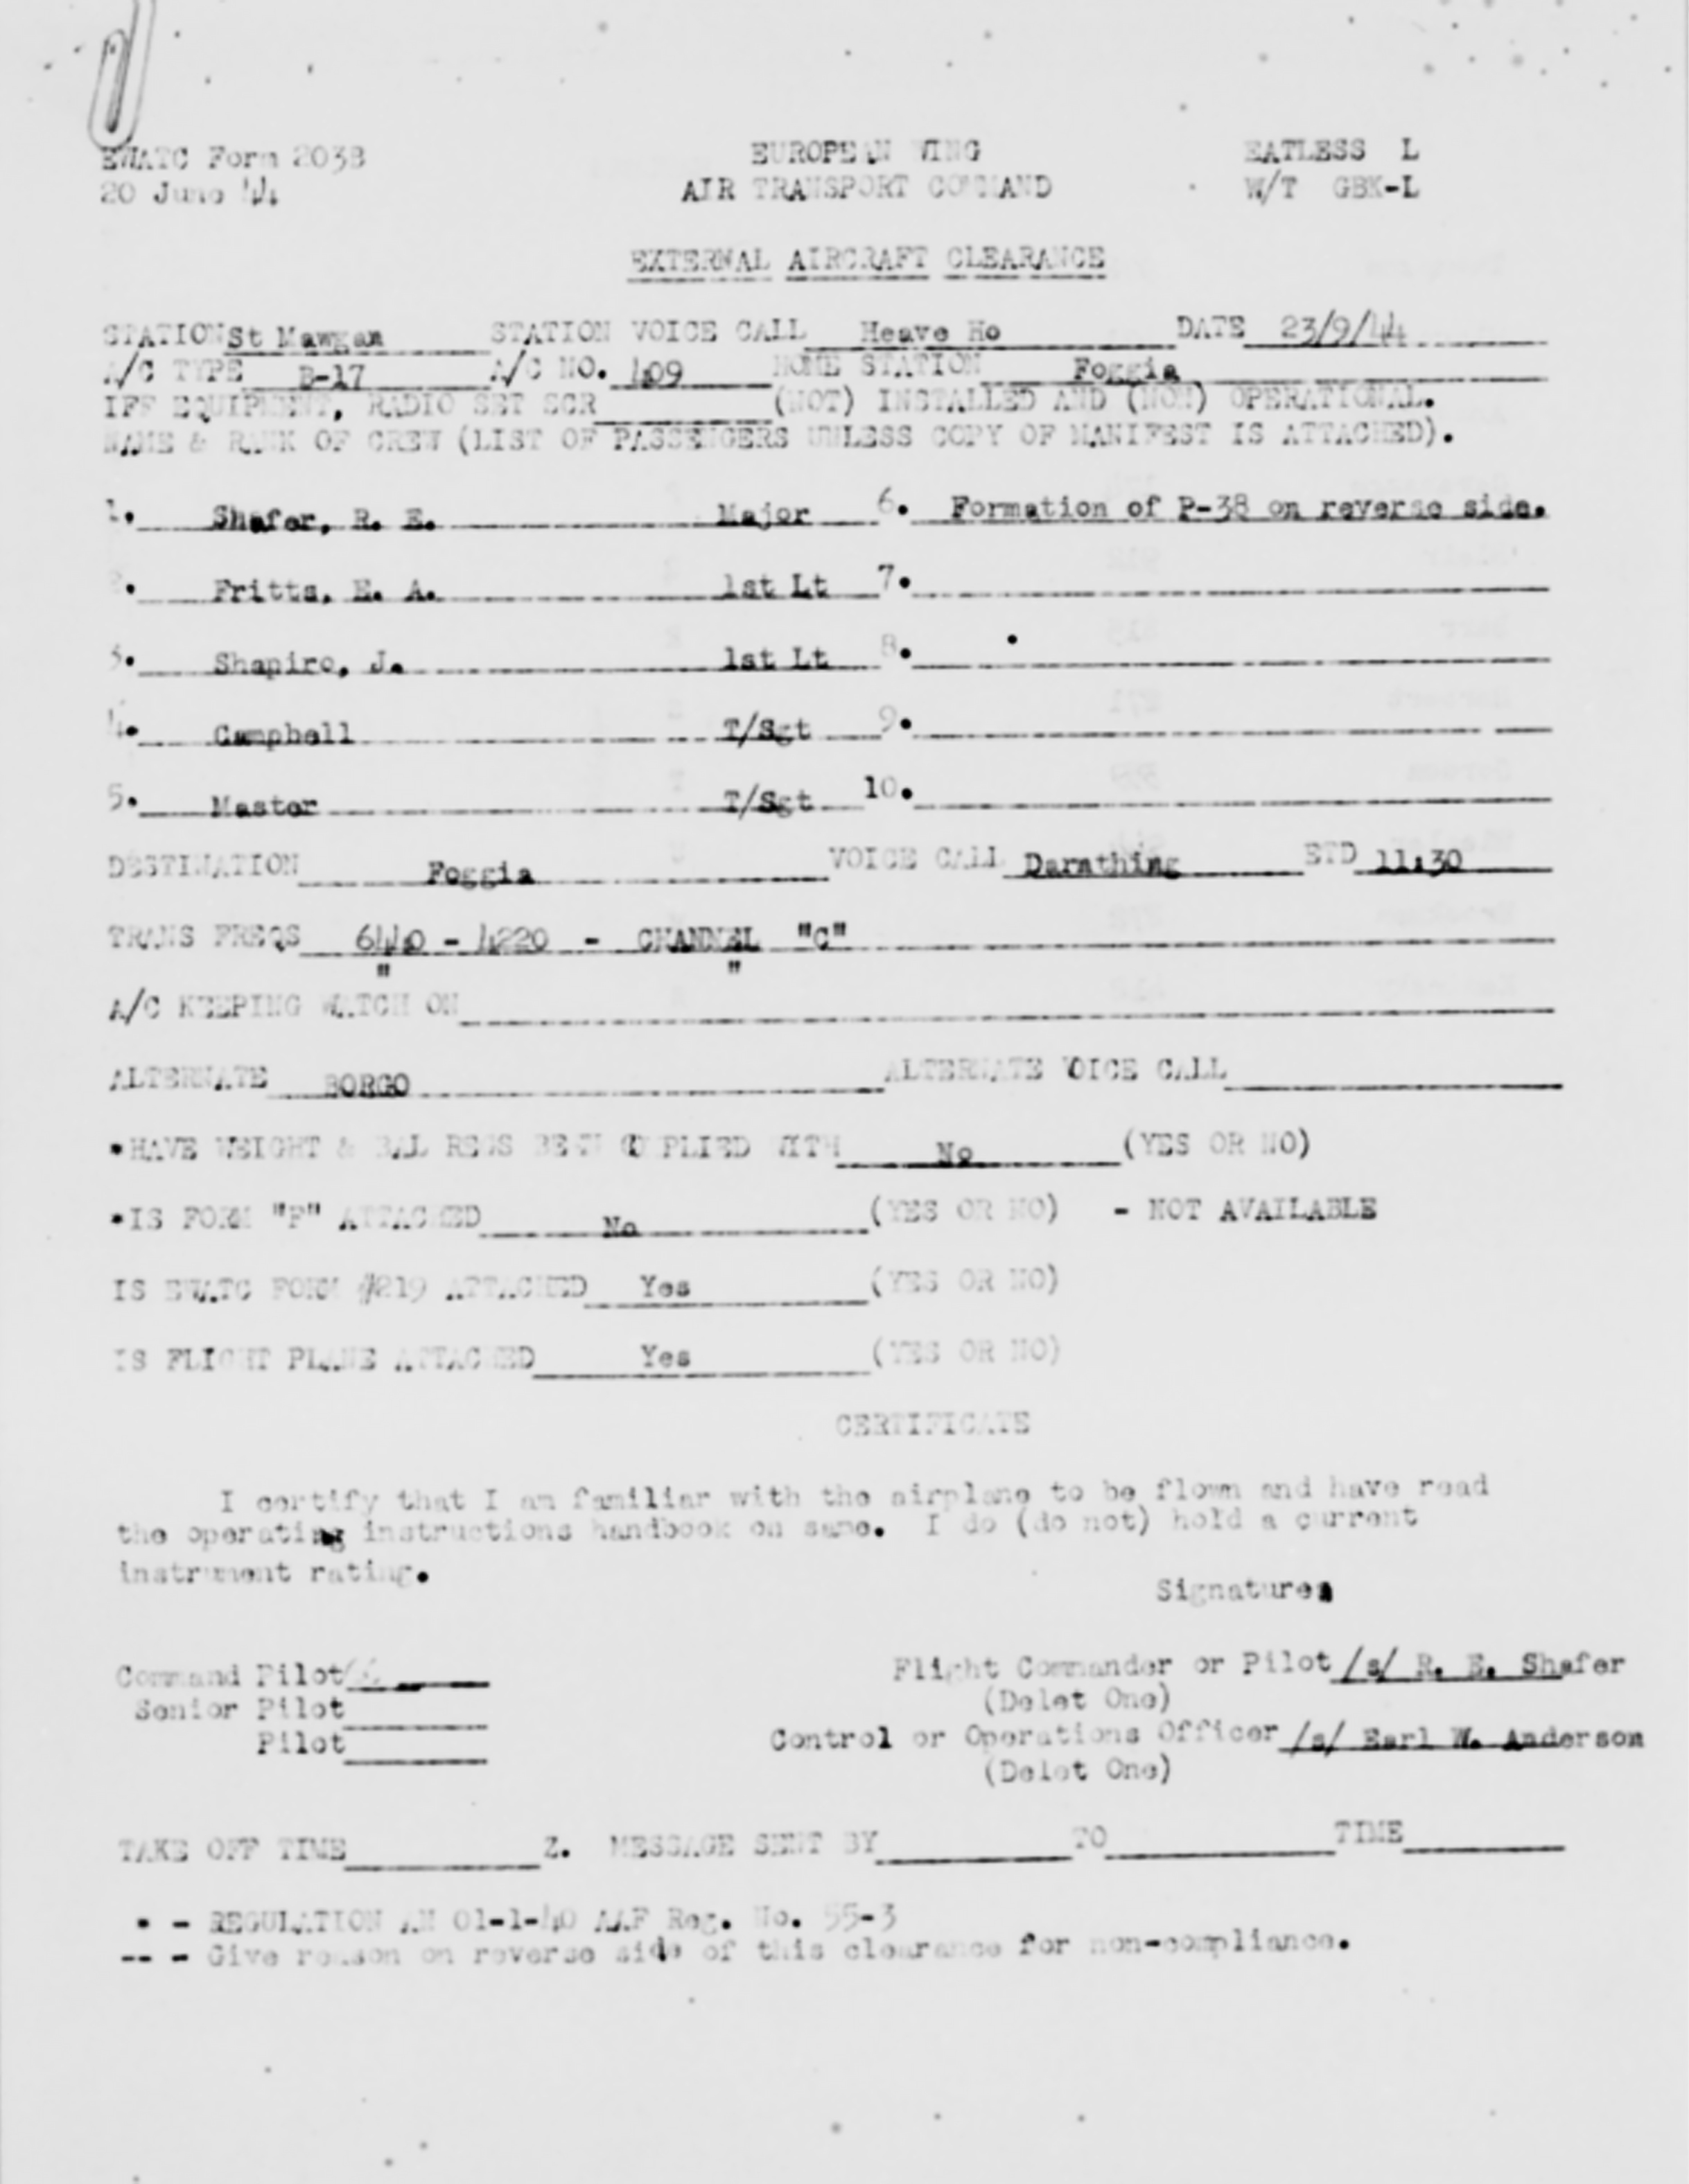 EWATC Form 203B EUROPEAN WING EATLESS L
20 June 44 AIR TRANSPORT COMMAND W/T GBK-L
EXTERNAL AIRCRAFT CLEARANCE
STATION St Mawgan STATION VOICE CALL Heave Ho DATE 23/9/44
A/C TYPE B-17 A/C NO. 409 HOME STATION Foggia
IFF EQUIPMENT, RADIO SET SCR (NOT) INSTALLED AND (NON) OPERATIONAL.
NAME & RANK OF CREW (LIST OF PASSENGERS UNLESS COPY OF MANIFEST IS ATTACHED).
1. Shafer, R. E. Major 6. Formation of P-38 on reverse side.
2. Fritts, E. A. 1st Lt 7.
3. Shapiro, J. 1st Lt 8.
4. Campbell T/Sgt 9.
5. Master T/Sgt 10.
DESTINATION Foggia VOICE CALL Darathing ETD 11:30
TRANS FREQS 6440 - 4220 - CHANNEL "C"
" "
A/C KEEPING WATCH ON
ALTERNATE BORGO ALTERNATE VOICE CALL
*HAVE WEIGHT & BAL REGS BEEN COMPLIED WITH No (YES OR NO)
*IS FORM "F" ATTACHED No (YES OR NO) - NOT AVAILABLE
IS EWATC FORM #219 ATTACHED Yes (YES OR NO)
IS FLIGHT PLANE ATTACHED Yes (YES OR NO)
CERTIFICATE
I certify that I am familiar with the airplane to be flown and have read
the operating instructions handbook on same. I do (do not) hold a current
instrument rating.
Signatures
Command Pilot Flight Commander or Pilot /s/ R. E. Shafer
Senior Pilot (Delet One)
Pilot Control or Operations Officer /s/ Earl W. Anderson
(Delet One)
TAKE OFF TIME Z. MESSAGE SENT BY TO TIME
* - REGULATION AN 01-1-40 AAF Reg. No. 55-3
-- - Give reason on reverse side of this clearance for non-compliance.